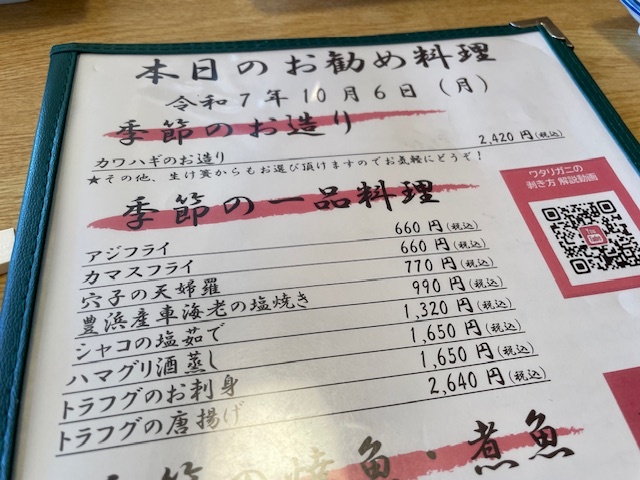 本日のお勧め料理
令和7年10月6日（月）
季節のお造り
カワハギのお造り 2,420円(税込)
★その他、生け簀からもお選び頂けますのでお気軽にどうぞ！
季節の一品料理
アジフライ 660円(税込)
カマスフライ 660円(税込)
穴子の天婦羅 770円(税込)
豊浜産車海老の塩焼き 990円(税込)
シャコの塩茹で 1,320円(税込)
ハマグリ酒蒸し 1,650円(税込)
トラフグのお刺身 1,650円(税込)
トラフグの唐揚げ 2,640円(税込)
季節の焼魚・煮魚
ワタリガニの
剥き方 解説動画
You
Tube